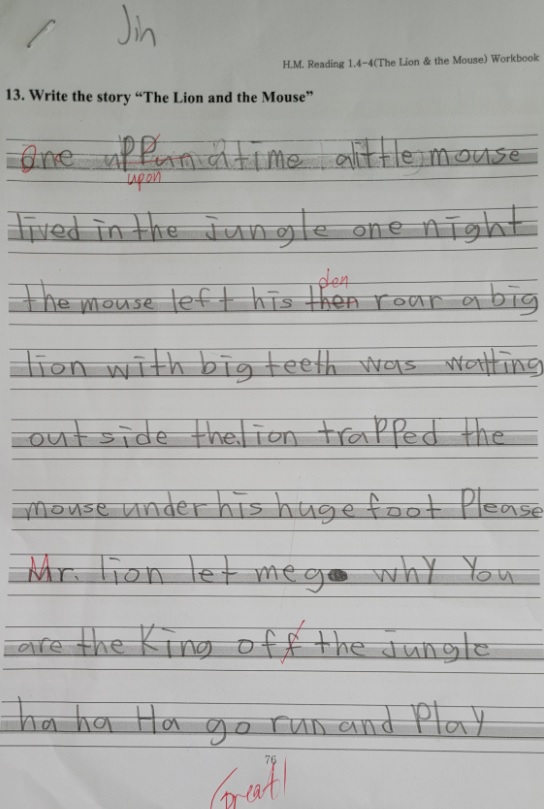 Jin
H.M. Reading 1.4-4(The Lion & the Mouse) Workbook
13. Write the story “The Lion and the Mouse”
One uppun a time a little mouse
upon
lived in the jungle one night
den
the mouse left his then roar a big
lion with big teeth was watting
out side the lion trapped the
mouse under his huge foot Please
Mr. lion let me go why You
are the King off the jungle
ha ha Ha go run and Play
76
Great!